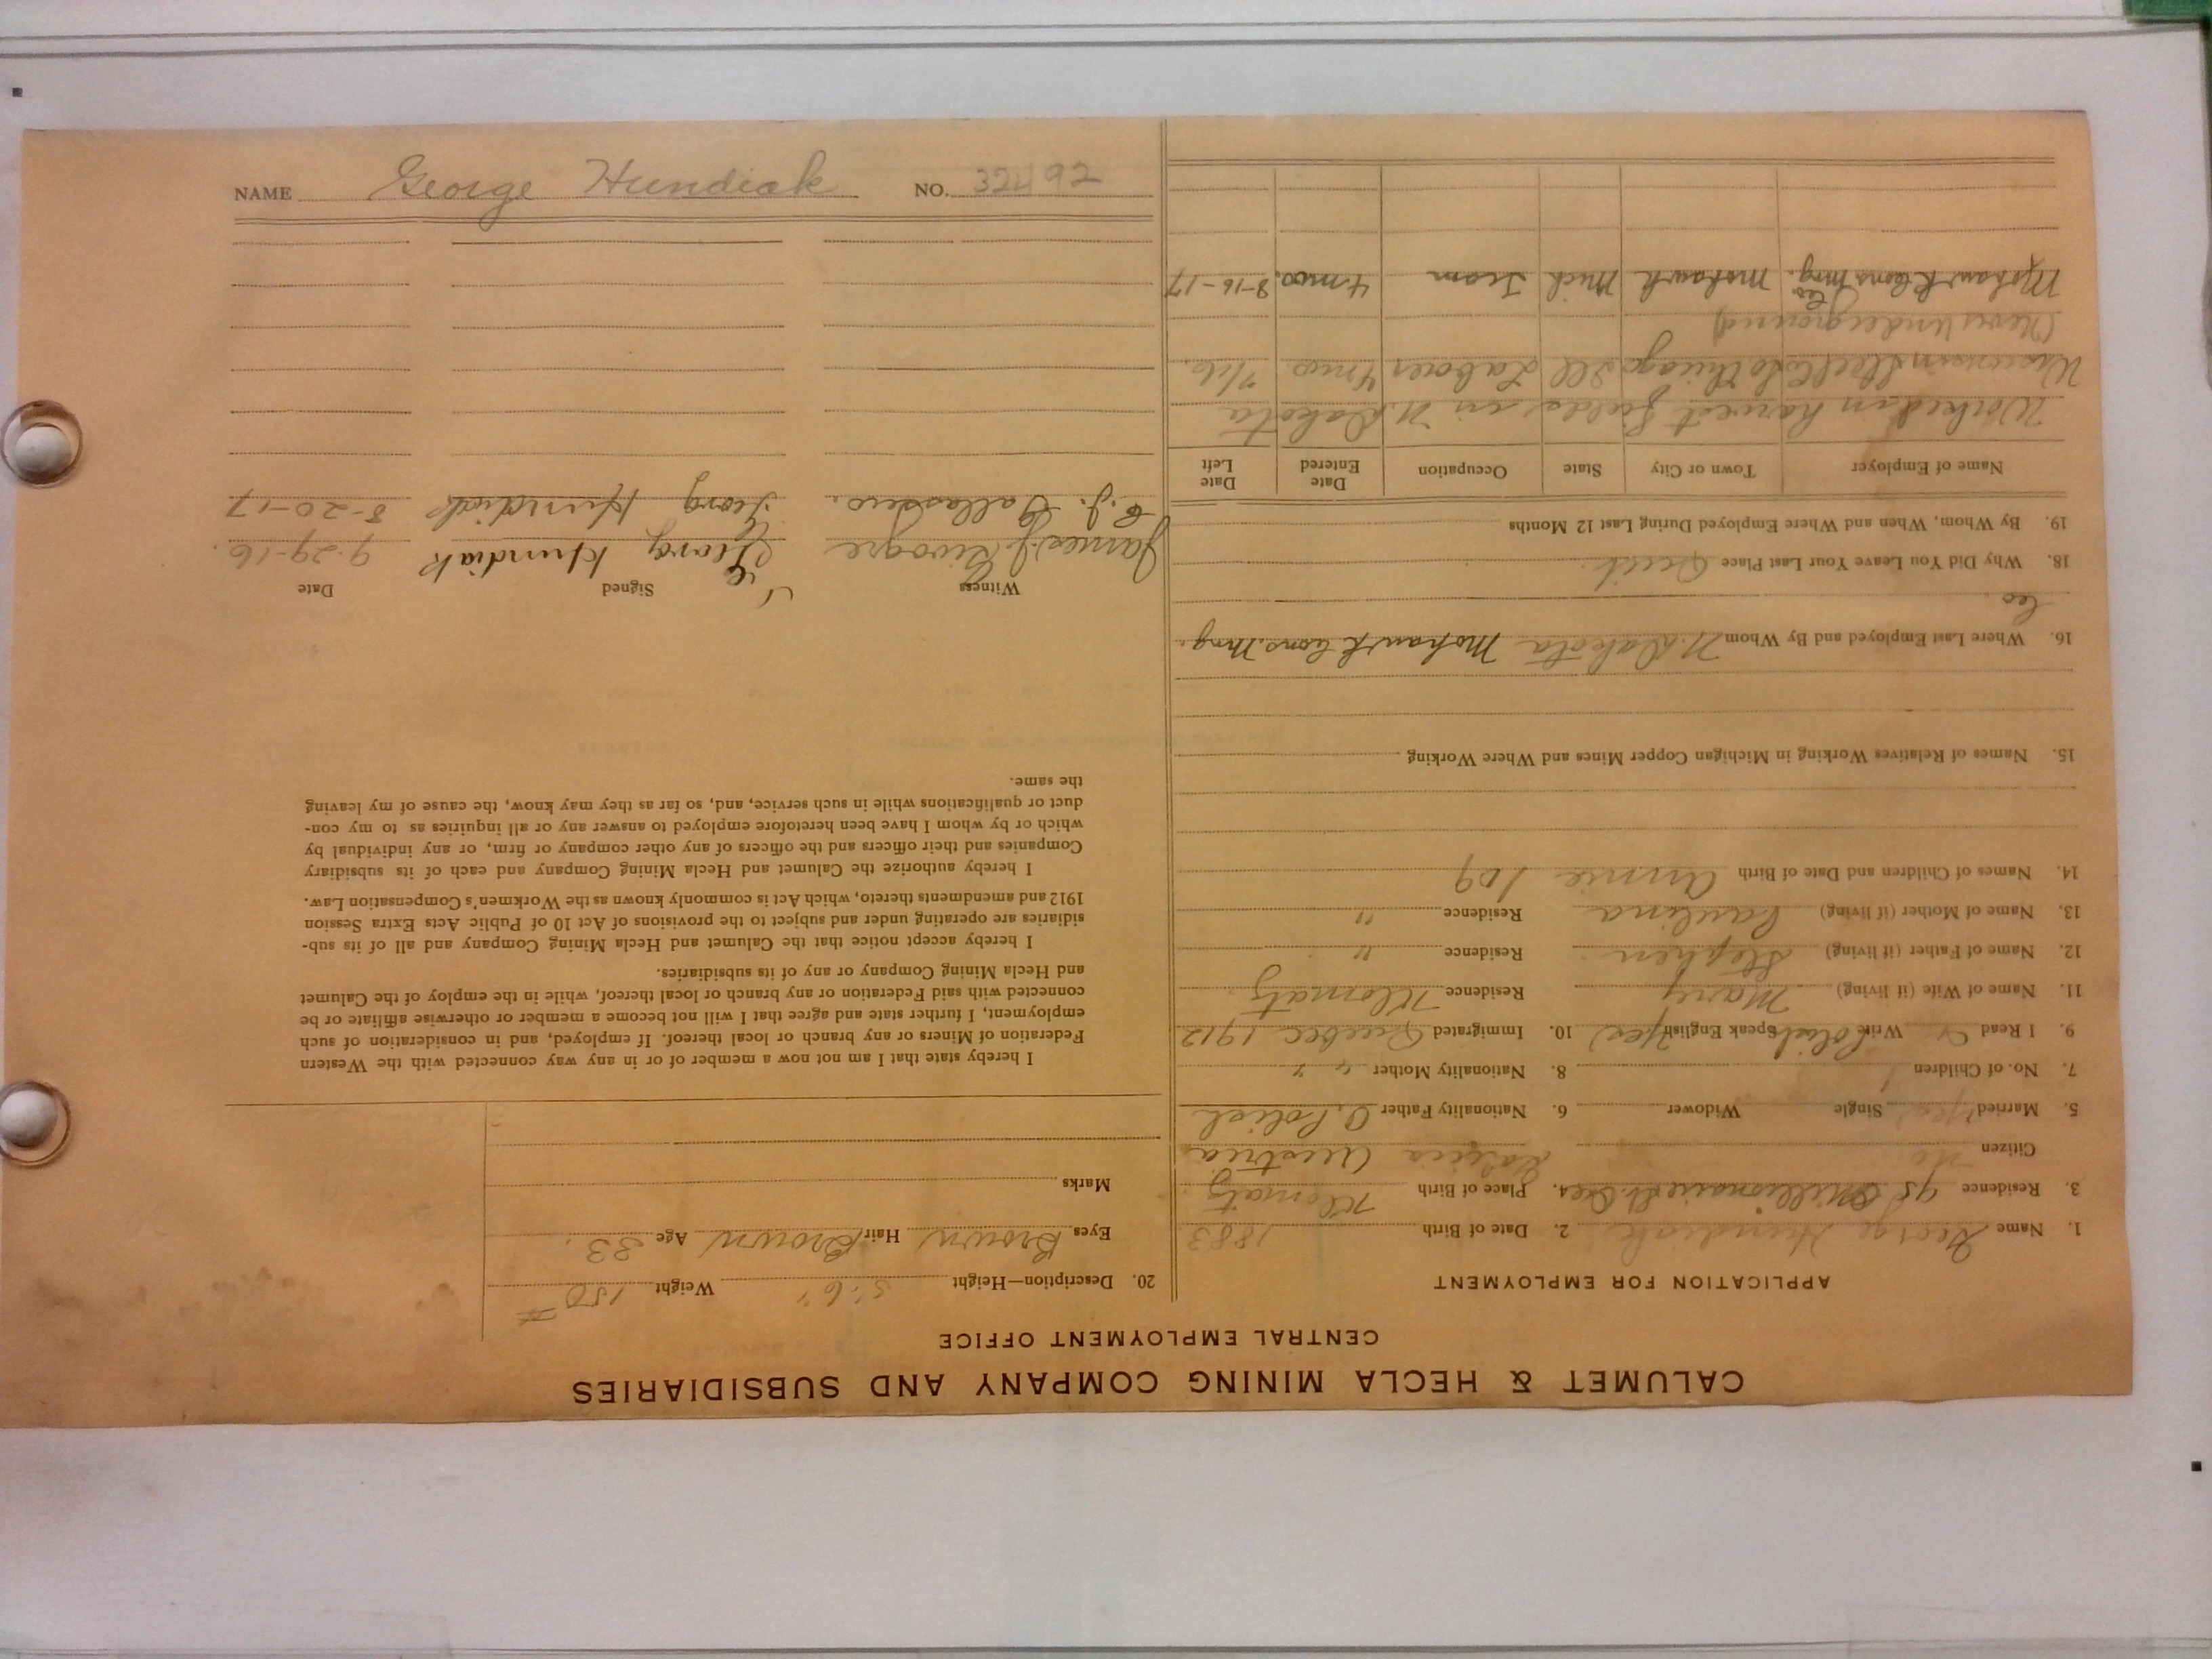 CALUMET & HECLA MINING COMPANY AND SUBSIDIARIES
CENTRAL EMPLOYMENT OFFICE
APPLICATION FOR EMPLOYMENT
1. Name George Hundiak 2. Date of Birth 1883
3. Residence 95 Millionaire St. 4. Place of Birth
Citizen no Galicia Austria
5. Married yes Single Widower 6. Nationality Father A. Polish
7. No. of Children 1 8. Nationality Mother " "
9. I Read & Write Polish Speak English yes 10. Immigrated Quebec 1912
11. Name of Wife (if living) Mary Residence
12. Name of Father (if living) Stephen Residence "
13. Name of Mother (if living) Paulina Residence "
14. Names of Children and Date of Birth Annie 1 09
15. Names of Relatives Working in Michigan Copper Mines and Where Working
16. Where Last Employed and By Whom N. Dakota Mohawk Cons. Mng.
Co.
18. Why Did You Leave Your Last Place Quit
19. By Whom, When and Where Employed During Last 12 Months
Name of Employer Town or City State Occupation Date Entered Date Left
Worked in harvest fields in N. Dakota
Wisconsin Steel Co So Chicago Ill Laborer 4 mos. 7/16.
(Never Underground)
Mohawk Cons Mng. Co Mohawk Mich Tram 4 mos. 8-16-17
20. Description—Height 5' 6" Weight 150 #
Eyes Brown Hair Brown Age 33.
Marks
I hereby state that I am not now a member of or in any way connected with the Western
Federation of Miners or any branch or local thereof. If employed, and in consideration of such
employment, I further state and agree that I will not become a member or otherwise affiliate or be
connected with said Federation or any branch or local thereof, while in the employ of the Calumet
and Hecla Mining Company or any of its subsidiaries.
I hereby accept notice that the Calumet and Hecla Mining Company and all of its sub-
sidiaries are operating under and subject to the provisions of Act 10 of Public Acts Extra Session
1912 and amendments thereto, which Act is commonly known as the Workmen's Compensation Law.
I hereby authorize the Calumet and Hecla Mining Company and each of its subsidiary
Companies and their officers and the officers of any other company or firm, or any individual by
which or by whom I have been heretofore employed to answer any or all inquiries as to my con-
duct or qualifications while in such service, and, so far as they may know, the cause of my leaving
the same.
Witness Signed Date
James J. Georg Hundiak 9-29-16.
Georg Hundiak 8-20-17
NAME George Hundiak NO. 32492